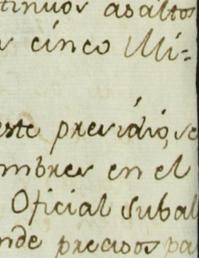 tinuos asaltos
cinco Mi=
este presidio, se
mbres en el
Oficial subal
nde precisos pa